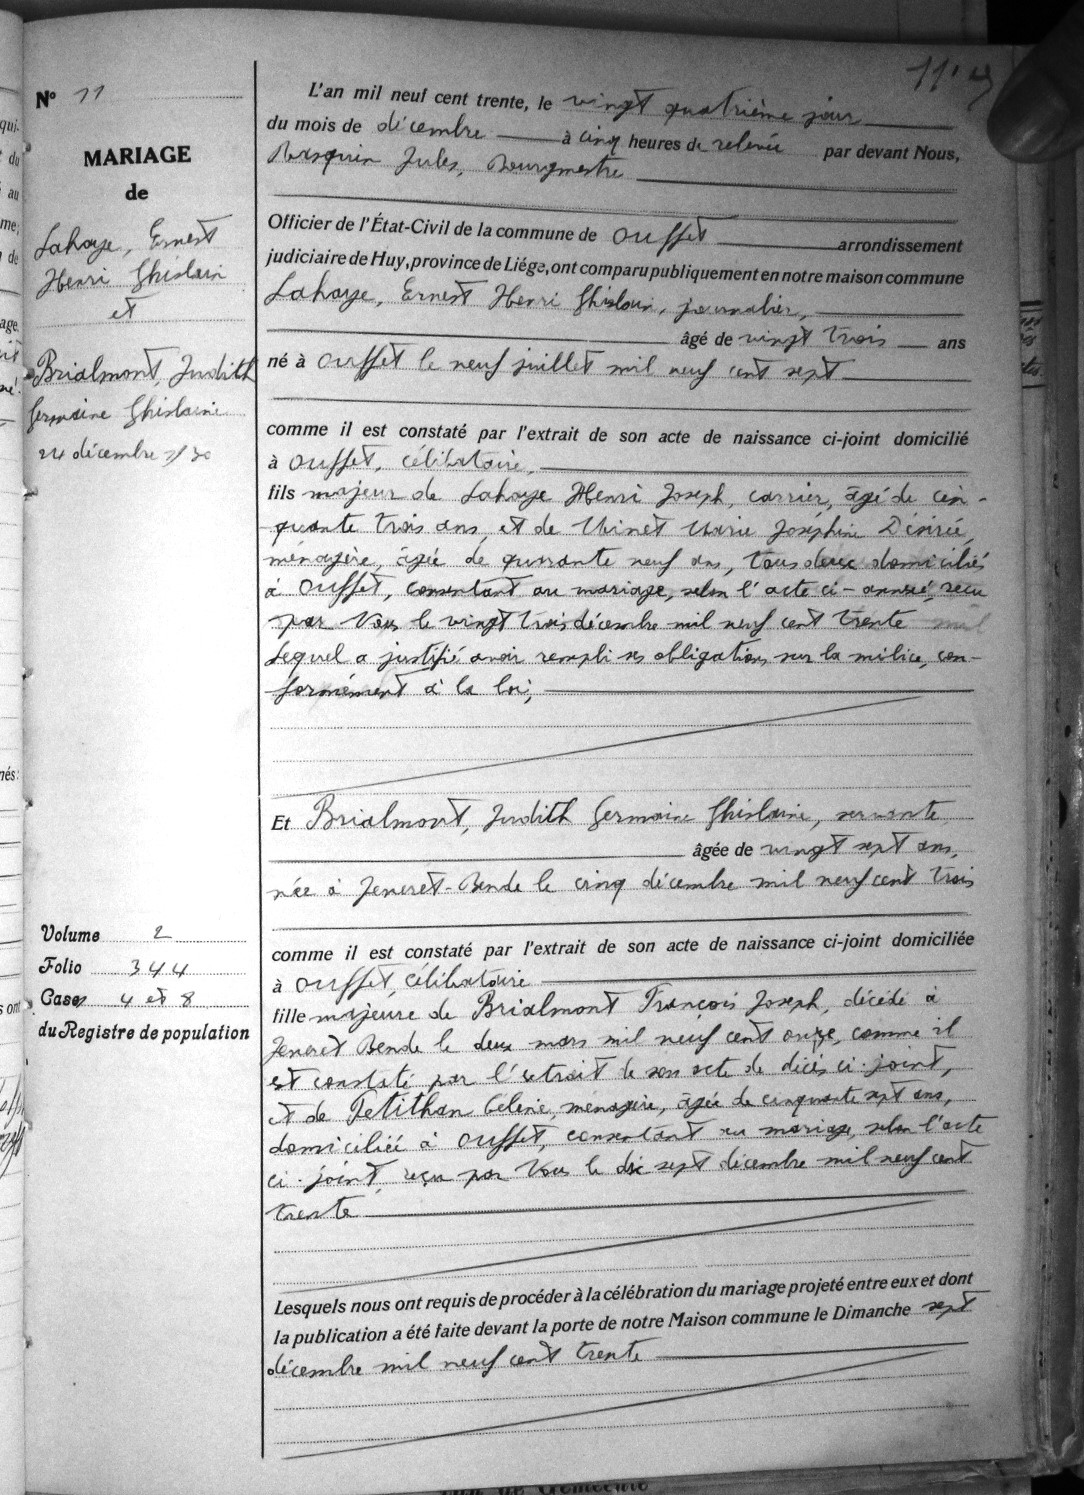 11
Nº 11
MARIAGE
de
Lahaye, Ernest
Henri Ghislain
et
Brialmont, Judith
Germaine Ghislaine
24 décembre 1930
Volume 2
Folio 344
Cases 4 et 8
du Registre de population
L'an mil neuf cent trente, le vingt quatrième jour
du mois de décembre à cinq heures de relevée par devant Nous,
Jules, Bourgmestre
Officier de l'État-Civil de la commune de Ouffet arrondissement
judiciaire de Huy, province de Liége, ont comparu publiquement en notre maison commune
Lahaye, Ernest Henri Ghislain, journalier,
âgé de vingt trois ans
né à Ouffet le neuf juillet mil neuf cent sept
comme il est constaté par l'extrait de son acte de naissance ci-joint domicilié
à Ouffet, célibataire,
fils majeur de Lahaye Henri Joseph, carrier, âgé de cin-
quante trois ans, et de Marie Joséphine Désirée,
ménagère, âgée de quarante neuf ans, tous deux domiciliés
à Ouffet, consentant au mariage, selon l'acte ci-annexé, reçu
par Nous le vingt trois décembre mil neuf cent trente
Lequel a justifié avoir rempli ses obligations sur la milice, con-
formément à la loi;
Et Brialmont, Judith Germaine Ghislaine, servante
âgée de vingt sept ans,
née à Jeneret-Bende le cinq décembre mil neuf cent trois
comme il est constaté par l'extrait de son acte de naissance ci-joint domiciliée
à Ouffet, célibataire
fille majeure de Brialmont François Joseph, décédé à
Jeneret Bende le deux mars mil neuf cent onze, comme il
est constaté par l'extrait de son acte de décès ci-joint,
et de Petithan Célénie, ménagère, âgée de cinquante sept ans,
domiciliée à Ouffet, consentant au mariage, selon l'acte
ci-joint, reçu par Nous le dix sept décembre mil neuf cent
trente
Lesquels nous ont requis de procéder à la célébration du mariage projeté entre eux et dont
la publication a été faite devant la porte de notre Maison commune le Dimanche sept
décembre mil neuf cent trente